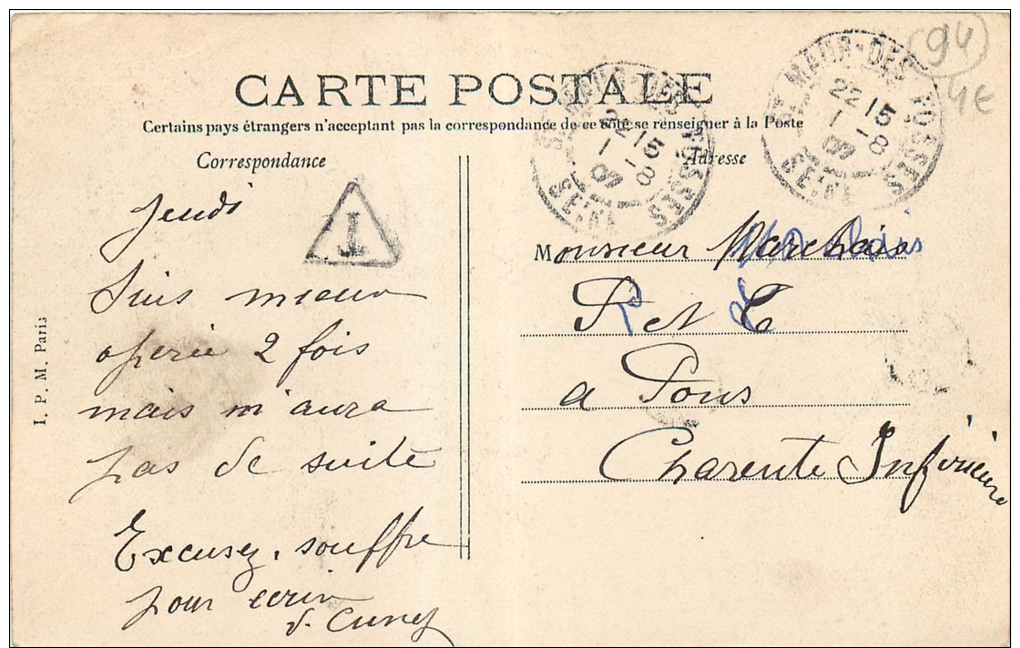 (94)
4€
CARTE POSTALE
Certains pays étrangers n'acceptant pas la correspondance de ce côté se renseigner à la Poste
Correspondance
Adresse
ST MAUR-DES-FOSSES
22 15
1 -8
09
SEINE
ST MAUR-DES-FOSSES
22 15
1 -8
09
SEINE
T
Jeudi
Suis mieux
opérée 2 fois
mais m'aura
pas de suite
Excusez, souffre
pour ecrire
Monsieur Marchais
R et T
a Pons
Charente Inférieure
I. P. M. Paris